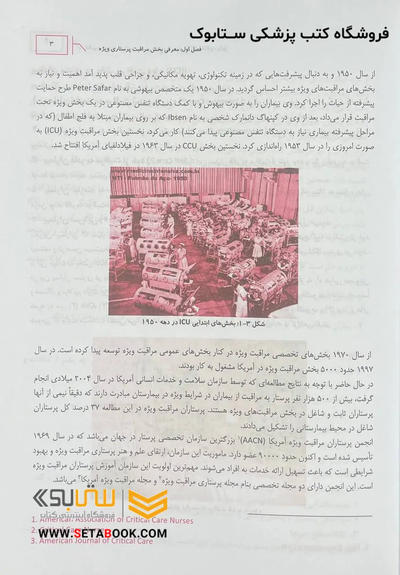 فروشگاه کتب پزشکی ستابوک
فصل اول: معرفی بخش مراقبت پرستاری ویژه
۳
از سال ۱۹۵۰ و به دنبال پیشرفت‌هایی که در زمینه تکنولوژی، تهویه مکانیکی، و جراحی قلب پدید آمد اهمیت و نیاز به
بخش‌های مراقبت‌های ویژه بیشتر احساس گردید. در سال ۱۹۵۰ یک متخصص بیهوشی به نام Peter Safar طرح حمایت
پیشرفته از حیات را اجرا کرد. وی بیماران را به صورت بیهوش و با کمک دستگاه تنفس مصنوعی در یک بخش ویژه تحت
مراقبت قرار می‌داد، بعد از وی در کپنهاگ دانمارک شخصی به نام Ibsen که بر روی بیماران مبتلا به فلج اطفال (که در
مراحل پیشرفته بیماری نیاز به دستگاه تنفس مصنوعی پیدا می‌کنند) کار می‌کرد، نخستین بخش مراقبت ویژه (ICU) به
صورت امروزی را در سال ۱۹۵۳ راه‌اندازی کرد. نخستین بخش CCU در سال ۱۹۶۲ در فیلادلفیای آمریکا افتتاح شد.
شکل ۳-۱: بخش‌های ابتدایی ICU در دهه ۱۹۵۰
از سال ۱۹۷۰ بخش‌های تخصصی مراقبت ویژه در کنار بخش‌های عمومی مراقبت ویژه توسعه پیدا کرده است. در سال
۱۹۹۷ حدود ۵۰۰۰ بخش ویژه در آمریکا مشغول به کار بودند.
در حال حاضر با توجه به نتایج مطالعه‌ای که توسط سازمان سلامت و خدمات انسانی آمریکا در سال ۲۰۰۴ میلادی انجام
گرفت، بیش از ۵۰۰ هزار نفر پرستار به مراقبت از بیماران در شرایط ویژه در بیمارستان مبادرت دارند که دقیقا نیمی از آنها
پرستاران ثابت و شاغل در بخش مراقبت‌های ویژه هستند. پرستاران مراقبت ویژه در این مطالعه ۳۷ درصد کل پرستاران
شاغل در محیط بیمارستانی را تشکیل می‌دادند.
انجمن پرستاران مراقبت ویژه آمریکا (AACN)¹ بزرگترین سازمان تخصصی پرستار در جهان می‌باشد که در سال ۱۹۶۹
تأسیس شده است و اکنون حدود ۹۰۰۰۰ عضو دارد. ماموریت این سازمان، ارتقای علم و هنر پرستاری مراقبت ویژه و بهبود
شرایطی است که باعث تسهیل ارائه خدمات به افراد می‌شوند. مهمترین اولویت این سازمان آموزش پرستاران مراقبت ویژه
است. این انجمن دارای دو مجله تخصصی بنام مجله پرستاری ویژه² و مجله مراقبت ویژه آمریکا³ می‌باشد.
ستابوک
فروشگاه اینترنتی کتاب
1. American Association of Critical Care Nurses
www.SETABOOK.COM
3. American Journal of Critical Care